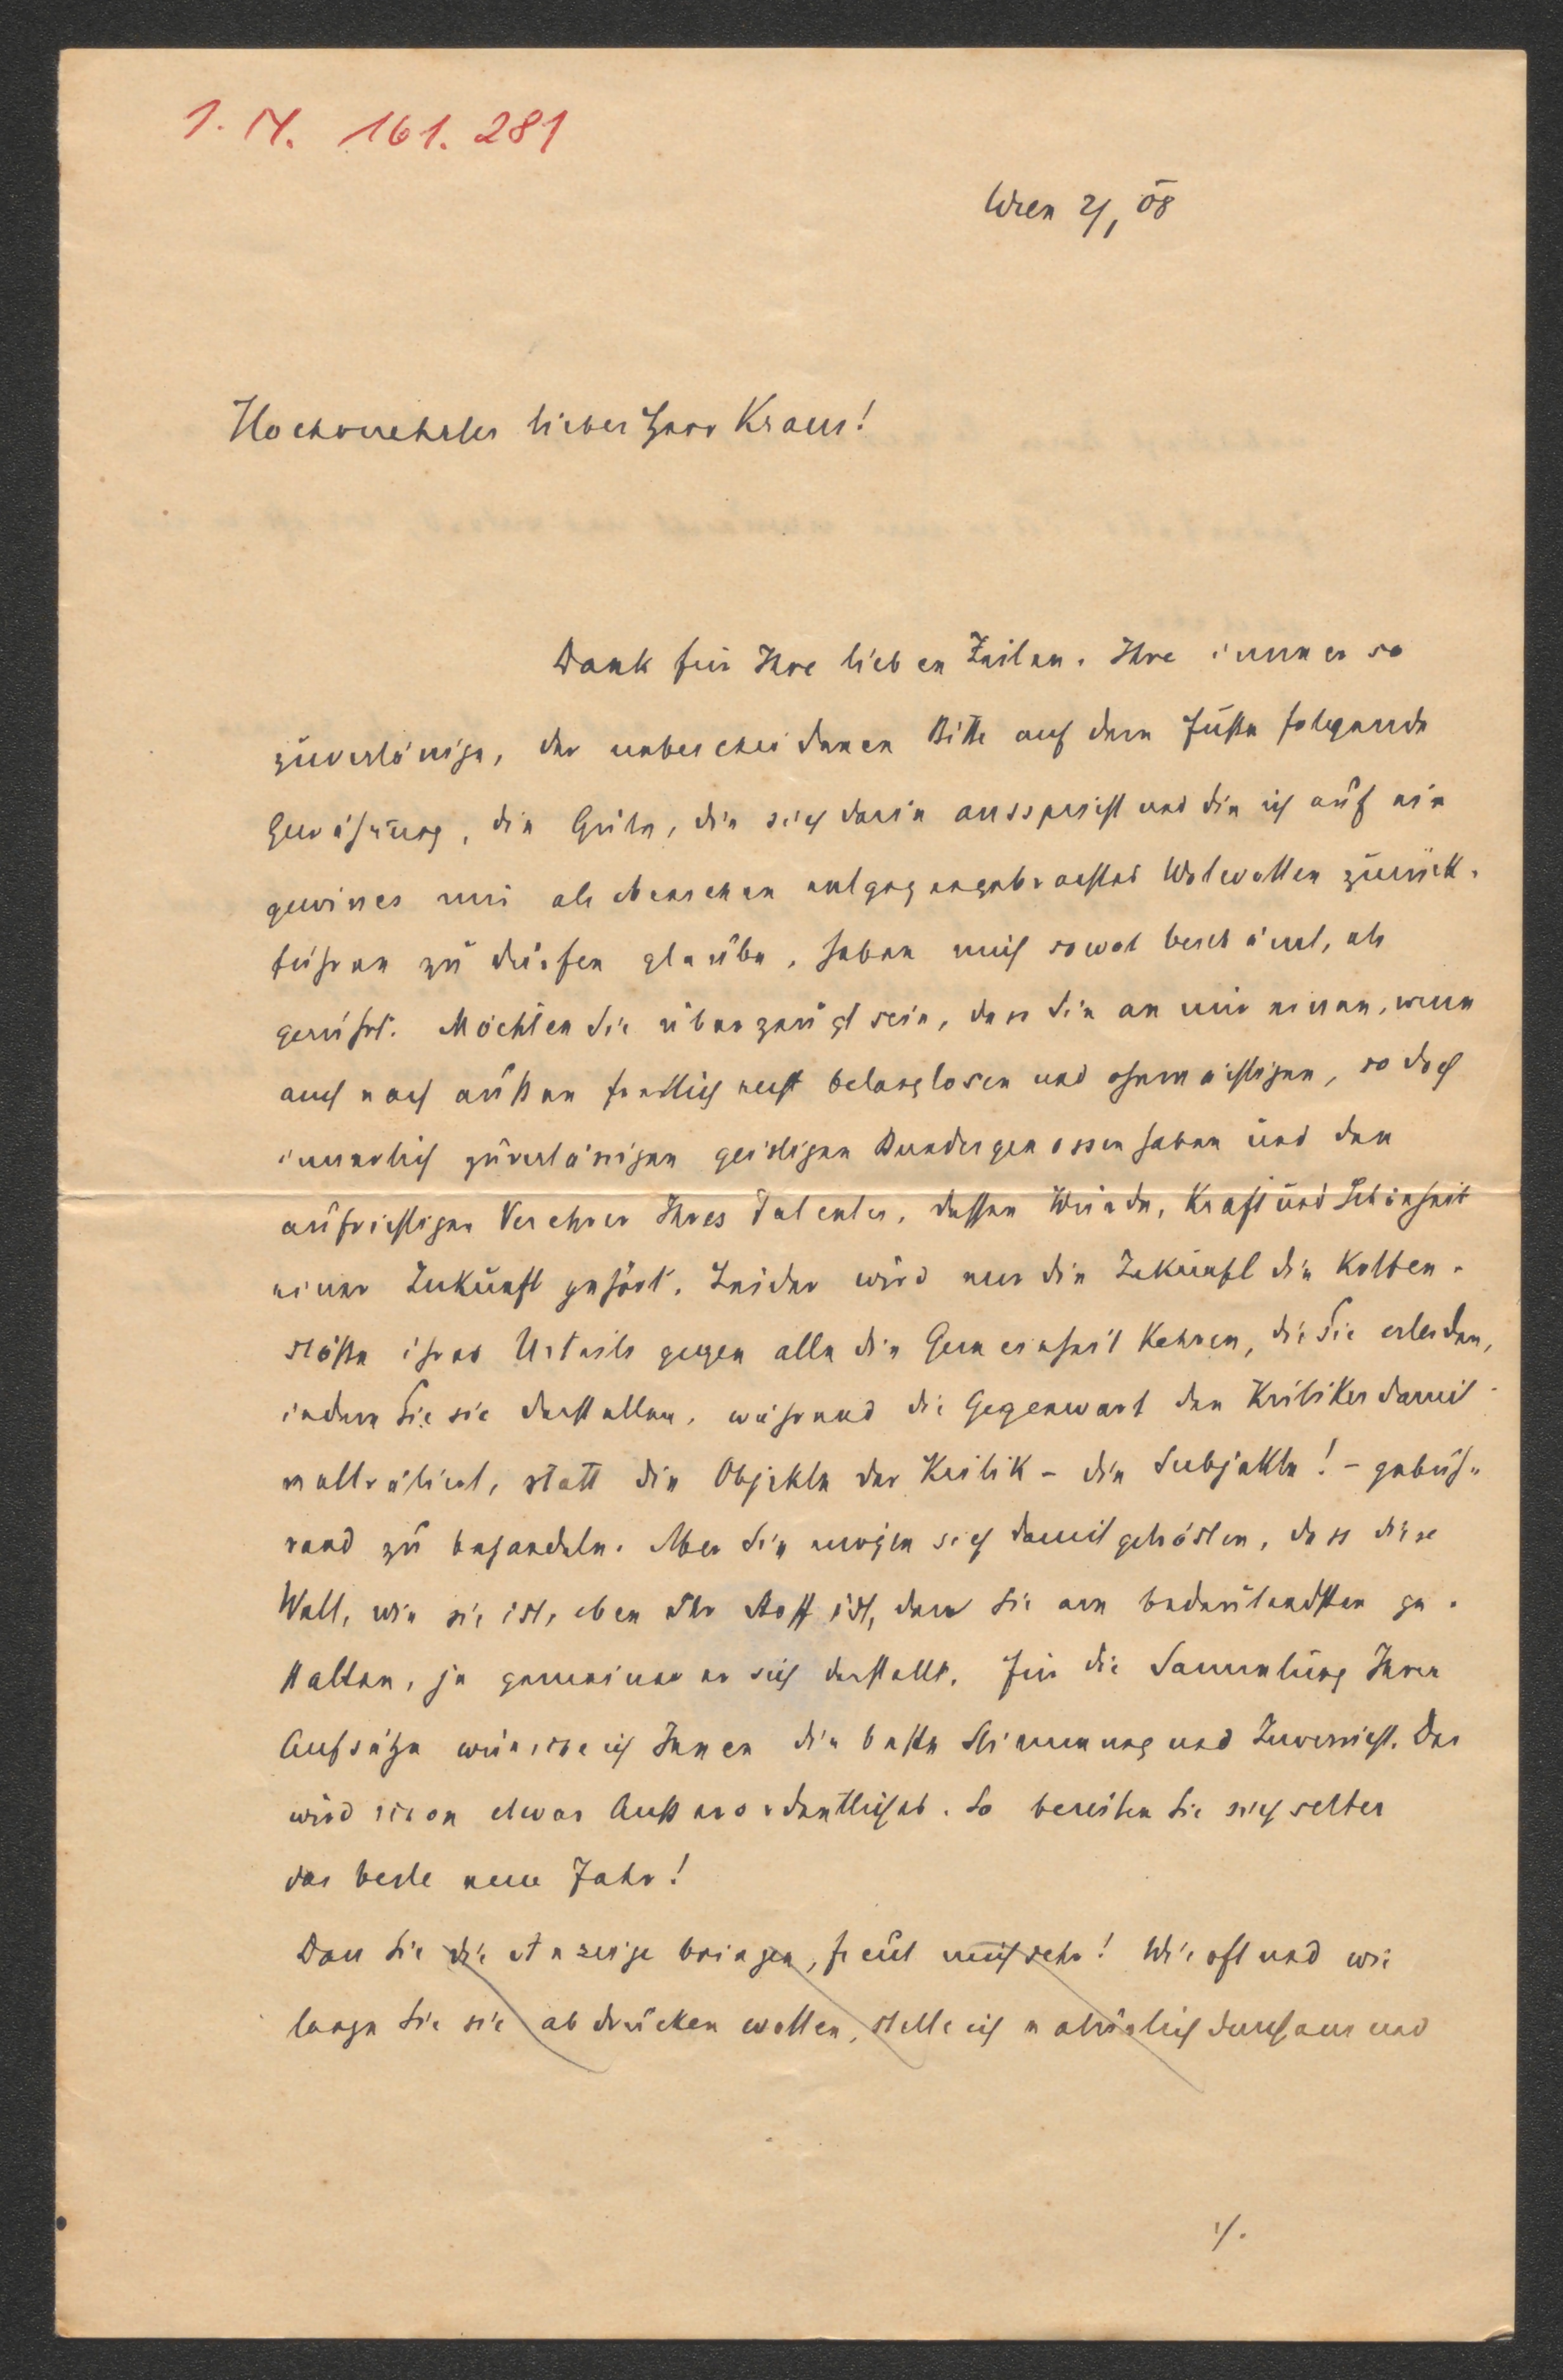 I. N. 161.281
Wien 2/I 08
Hochverehrter lieber Herr Kraus!
Dank für Ihre lieben Zeilen. Ihre immer so
zuverlässige, der unbescheidenen Bitte auf dem Fuße folgende
Gewährung, die Güte, die sich darin ausspricht und die ich auf ein
gewisses mir als Menschen entgegengebrachtes Wolwollen zurück-
führen zu dürfen glaube, haben mich sowol beschämt, als
gerührt. Möchten Sie überzeugt sein, dass Sie an mir einen, wenn
auch nach außen freilich recht belanglosen und ohnmächtigen, so doch
innerlich zuverlässigen geistigen Bundesgenossen haben und den
aufrichtigen Verehrer Ihres Talentes, dessen Würde, Kraft und Schönheit
einer Zukunft gehört. Leider wird nur die Zukunft die Kolben-
stöße ihres Urteils gegen alle die Gemeinheit kehren, die Sie erleiden,
indem Sie sie darstellen, während die Gegenwart den Kritiker damit
malträtiert, statt die Objekte der Kritik – die Subjekte! – gebüh-
rend zu behandeln. Aber Sie mögen sich damit getrösten, dass diese
Welt, wie sie ist, eben Ihr Stoff ist, den Sie am bedeutendsten ge-
stalten, je gemeiner er sich darstellt. Für die Sammlung Ihrer
Aufsätze wünsche ich Ihnen die beste Stimmung und Zuversicht. Das
wird schon etwas Außerordentliches. So bereiten Sie sich selber
das beste neue Jahr!
Dass Sie die Anzeige bringen, freut mich sehr! Wie oft und wie
lange Sie sie abdrucken wollen, stelle ich natürlich durchaus und